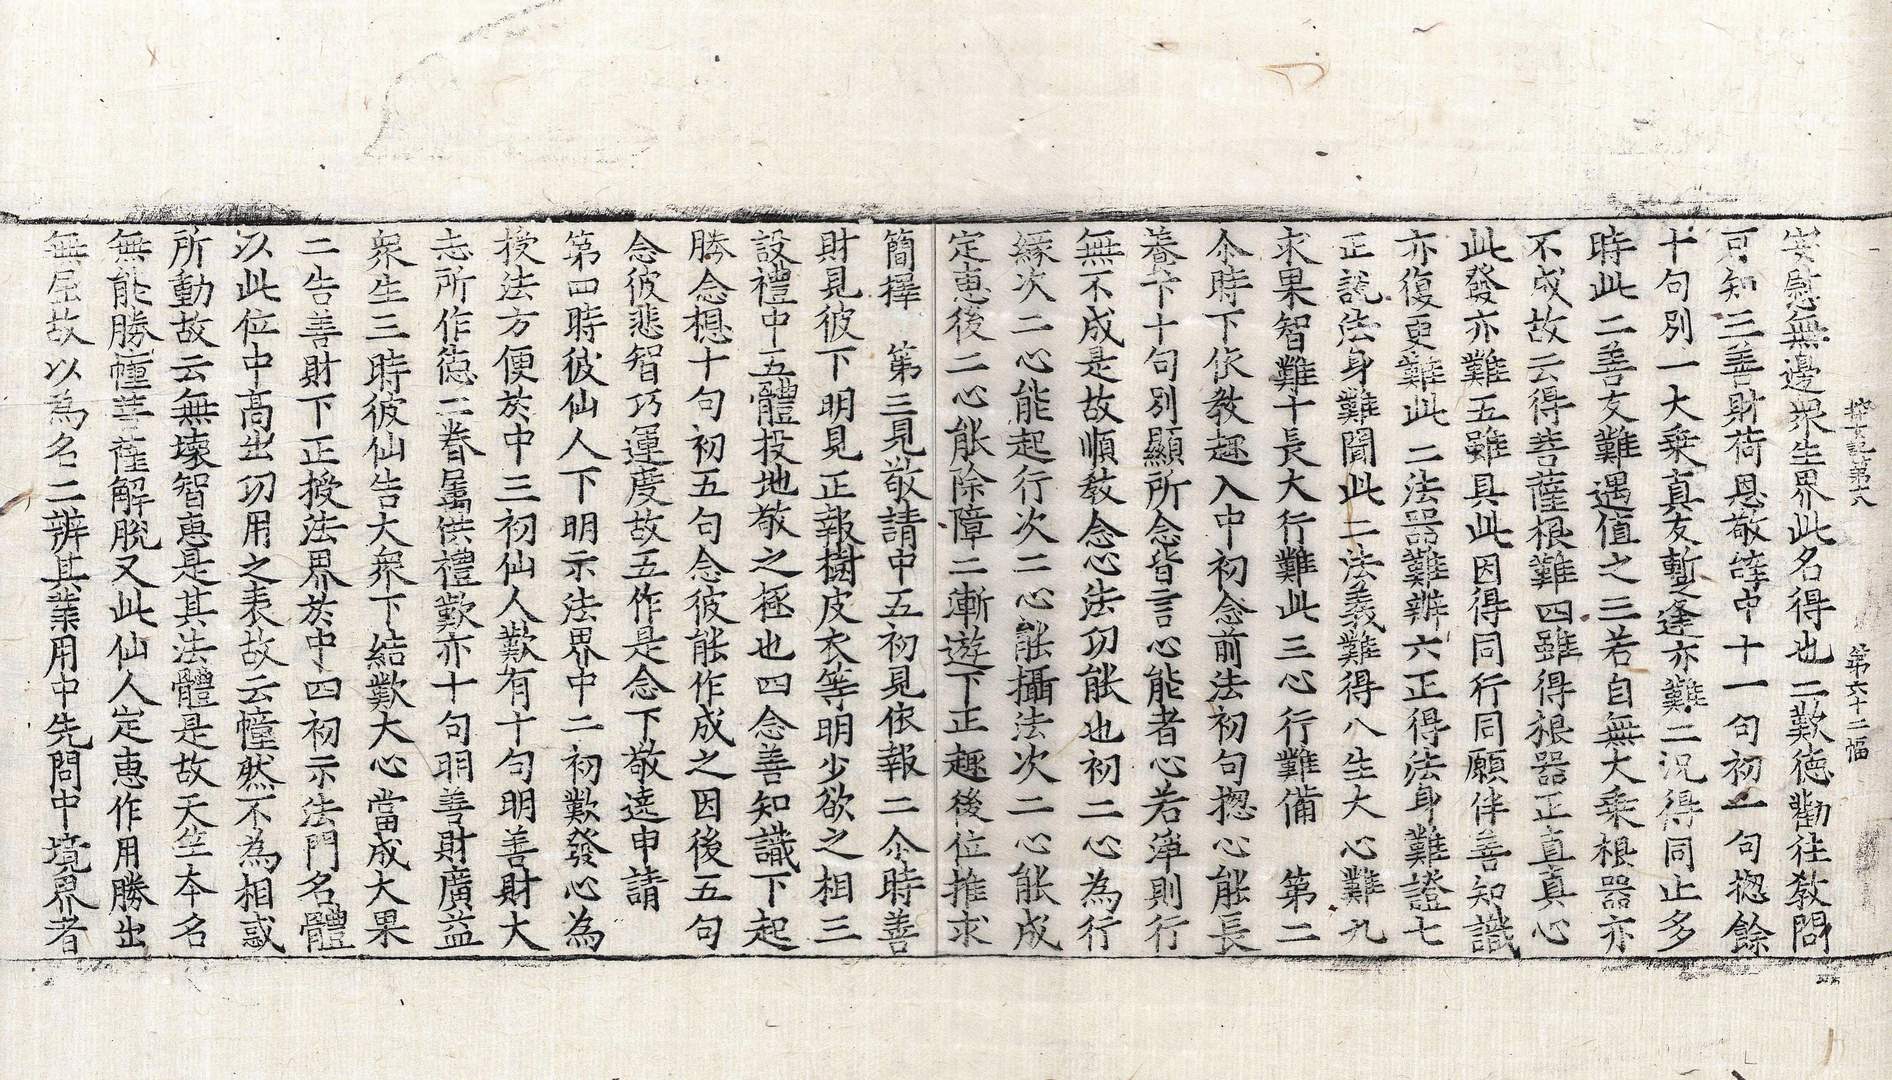 探玄記第六　第六十二幅
安慰無邊眾生界此名得也二歎德勸往教問
可知三善財荷恩敬等中十一句初一句揔餘
十句別一大乗真友蹔逢亦難二況得同止多
時此二善友難遇值之三若自無大乗根器亦
不成故云得菩薩根難四雖得根器正直真心
此發亦難五雖具此因得同行同願伴善知識
亦復更難此二法器難辦六正得法身難證七
正說法身難聞此二法義難得八生大心難九
求果智難十長大行難此三心行難備　第二
尒時下依教趣入中初念前法初句揔心能長
養下十句別顯所念皆言心能者心若淨則行
無不成是故順教念心法功能也初二心為行
緣次二心能起行次二心能攝法次二心能成
定惠後二心能除障二漸遊下正趣後位推求
簡擇　第三見敬請中五初見依報二尒時善
財見彼下明見正報樹皮衣等明少欲之相三
設禮中五體投地敬之極也四念善知識下起
勝念想十句初五句念彼能作成之因後五句
念彼悲智巧運度故五作是念下敬遶申請
第四時彼仙人下明示法界中二初歎發心為
授法方便於中三初仙人歎有十句明善財大
志所作德二眷屬供禮歎亦十句明善財廣益
衆生三時彼仙告大衆下結歎大心當成大果
二告善財下正授法界於中四初示法門名體
以此位中高出功用之表故云幢然不為相惑
所動故云無壞智惠是其法體是故天竺本名
無能勝幢菩薩解脫又此仙人定惠作用勝出
無屈故以為名二辨其業用中先問中境界者